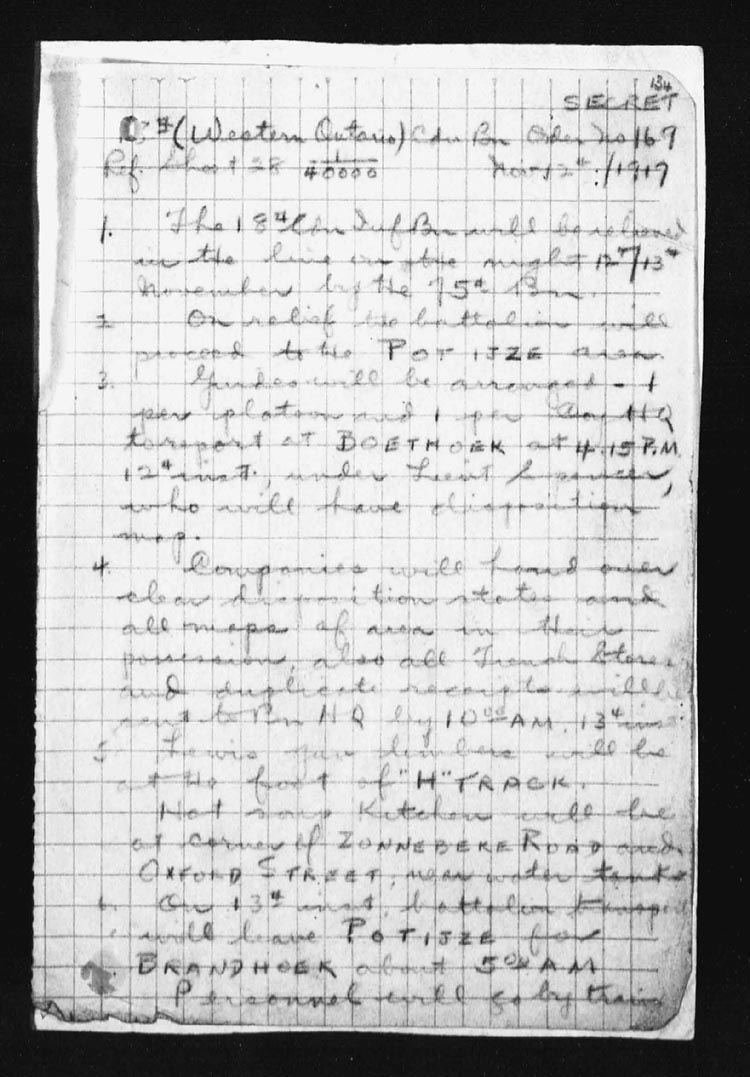 134
SECRET
(Western Ontario) Cdn Bn Order No 169
Ref. Sheet 28 1/40000 Nov 12th /1917
1. The 18th Cdn Inf Bn will be relieved
in the line on the night 12th/13th
November by the 75th Bn.
2 On relief the battalion will
proceed to the POTIJZE area.
3. Guides will be arranged - 1
per platoon and 1 per Coy HQ
to report at BOETHOEK at 4.15 P.M.
12th inst., under Lieut Spencer,
who will have disposition
map.
4. Companies will hand over
clear disposition states and
all maps of area in their
possession, also all Trench Stores
and duplicate receipts will be
sent to Bn HQ by 10 00 AM. 13th inst.
5. Lewis gun limbers will be
at the foot of "H" TRACK.
Hot soup Kitchen will be
at corner of ZONNEBEKE ROAD and
OXFORD STREET, near water tanks
6. On 13th inst. battalion transport
will leave POTIJZE for
BRANDHOEK about 5 00 AM
Personnel will go by train